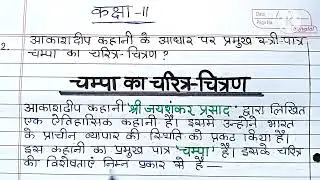 कक्षा-11
Date
Page No.
2. आकाशदीप कहानी के आधार पर प्रमुख स्त्री-पात्र
चम्पा का चरित्र-चित्रण ?
चम्पा का चरित्र-चित्रण
आकाशदीप कहानी श्री जयशंकर प्रसाद द्वारा लिखित
एक ऐतिहासिक कहानी है। इसमें उन्होंने भारत
के प्राचीन व्यापार की स्थिति को प्रकट किया है।
इस कहानी का प्रमुख पात्र 'चम्पा' है। इसके चरित्र
की विशेषताएं निम्न प्रकार से हैं —